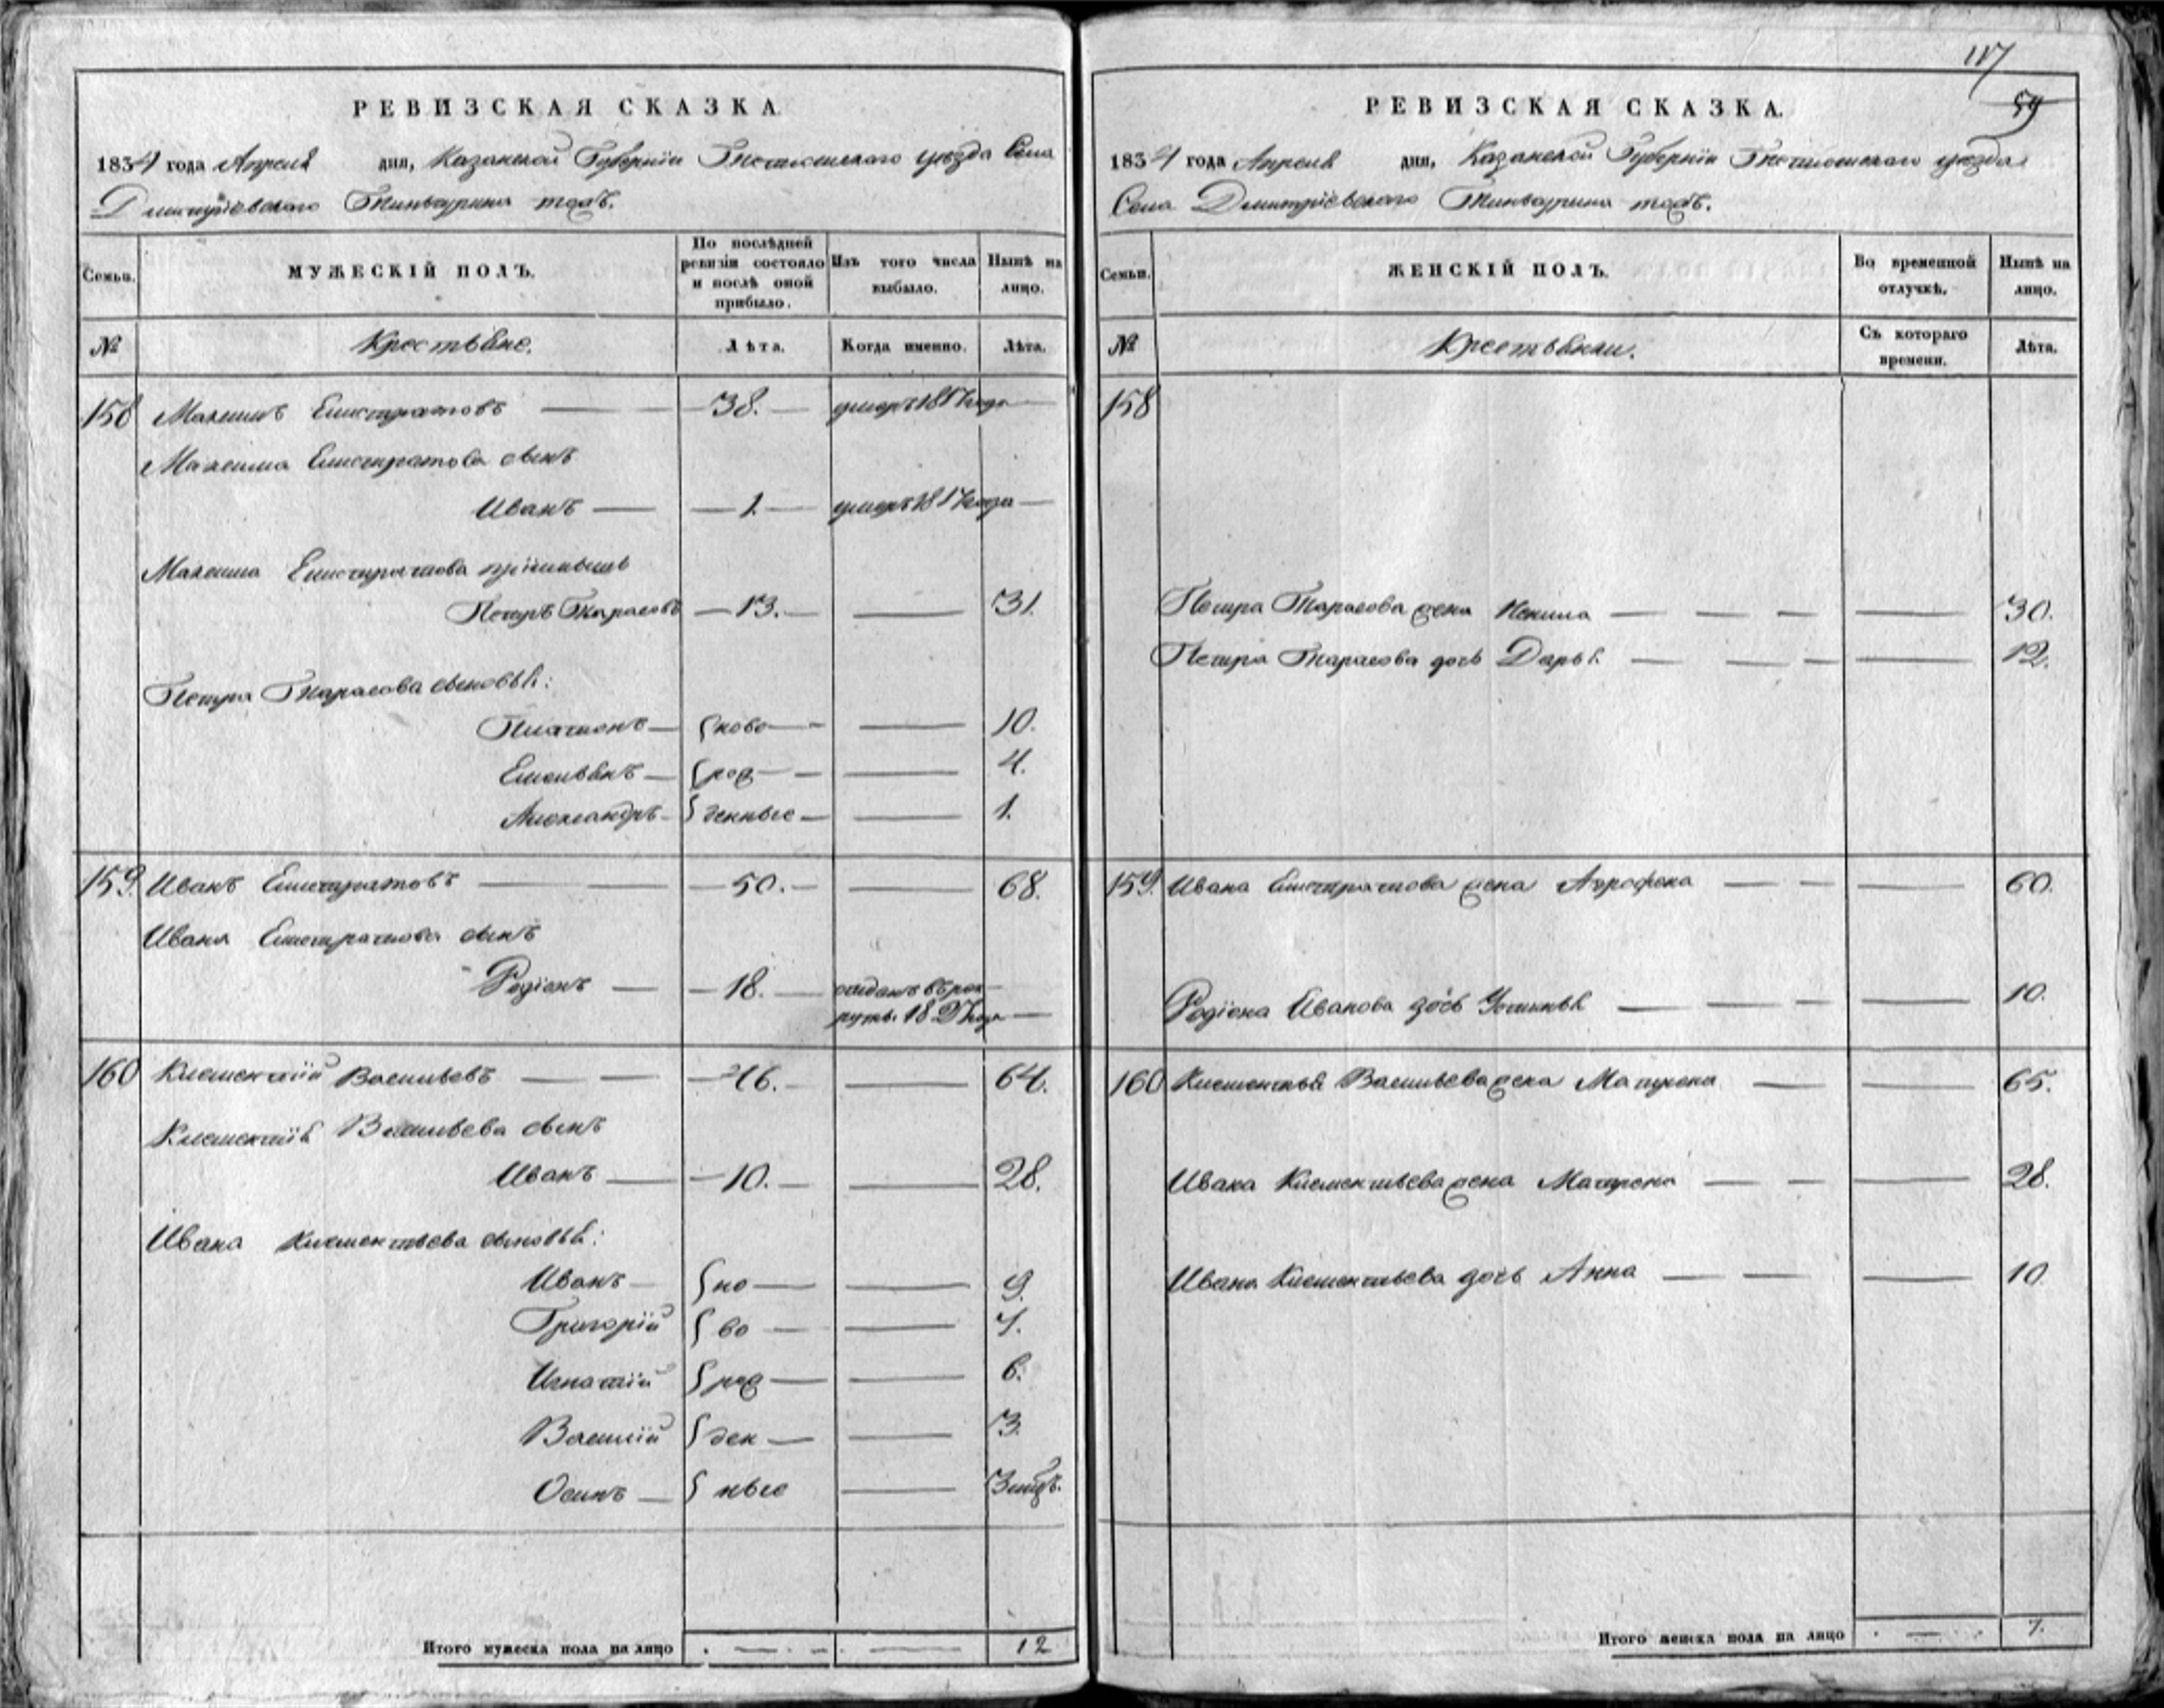 РЕВИЗСКАЯ СКАЗКА
1834 года Апреля дня, Казанской Губернiи уѣзда Села
Дмитрiевского тожъ.
Семьи.
МУЖЕСКIЙ ПОЛЪ.
По послѣдней ревизiи состояло и послѣ оной прибыло.
Изъ того числа выбыло.
Нынѣ на лицо.
№
Крестьяне.
Лѣта.
Когда именно.
Лѣта.
158 Максимъ Елистратовъ — 38. — умеръ 1817 года —
Максима Елистратова сынъ
Иванъ — 1. — умеръ 1817 года —
Максима Елистратова прiимышь
Петръ Тарасовъ — 13. — 31.
Петра Тарасова сыновья:
Платонъ — ново — 10.
Емельянъ — рож — 4.
Александръ — денные — 1.
159. Иванъ Елистратовъ — 50. — 68.
Ивана Елистратова сынъ
Родiонъ — 18. — отданъ въ рек
руты 1827 года —
160 Клементiй Васильевъ — 46. — 64.
Клементiя Васильева сынъ
Иванъ — 10. — 28.
Ивана Клементьева сыновья:
Иванъ — но — 9.
Григорiй во — 7.
Игнатiй рож — 6.
Василiй ден — 3.
Осипъ — ные — 3 мѣс.
Итого мужеска пола на лицо . — . — . — 12
117
59
РЕВИЗСКАЯ СКАЗКА.
1834 года Апреля дня, Казанской Губернiи уѣзда
Села Дмитрiевского тожъ.
Семьи.
ЖЕНСКIЙ ПОЛЪ.
Во временной отлучкѣ.
Нынѣ на лицо.
№
Крестьянки.
Съ котораго времени.
Лѣта.
158
Петра Тарасова жена — 30.
Петра Тарасова дочь Дарья — 12.
159. Ивана Елистратова жена Аграфена — 60.
Родiона Иванова дочь Устинья — 10.
160 Клементья Васильева жена Матрена — 65.
Ивана Клементьева жена Матрена — 28.
Ивана Клементьева дочь Анна — 10.
Итого женска пола на лицо . — . 7.